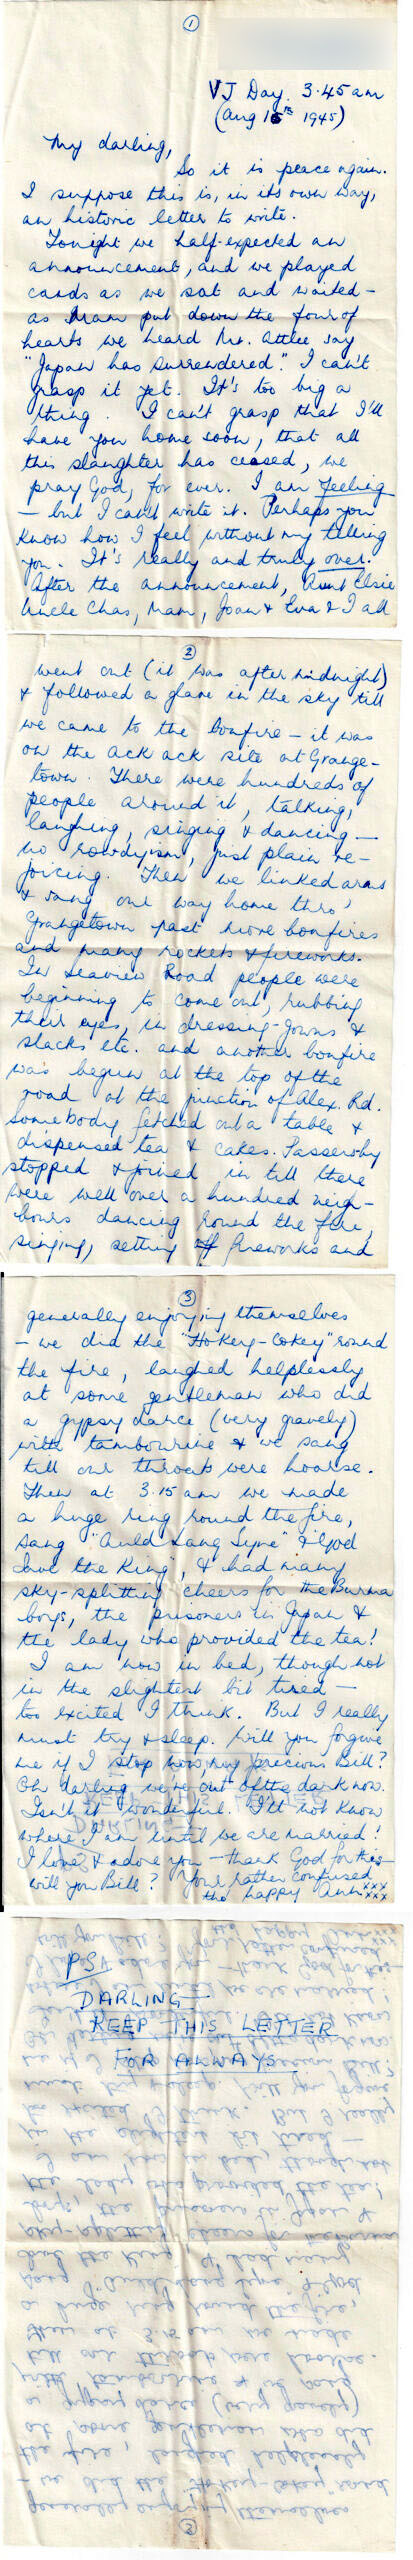 1
VJ Day. 3.45 am
(Aug 15th 1945)
My darling,
So it is peace again.
I suppose this is, in its own way,
an historic letter to write.
Tonight we half-expected an
announcement, and we played
cards as we sat and waited –
as Mam put down the four of
hearts we heard Mr. Attlee say
"Japan has surrendered." I can't
grasp it yet. It's too big a
thing. I can't grasp that I'll
have you home soon, that all
this slaughter has ceased, we
pray God, for ever. I am feeling
– but I can't write it. Perhaps you
know how I feel without my telling
you. It's really and truly over.
After the announcement, Aunt Elsie
Uncle Chas, Mam, Joan & Eva & I all
2
went out (it was after midnight)
& followed a glare in the sky till
we came to the bonfire – it was
on the ack ack site at Grange-
town. There were hundreds of
people around it, talking,
laughing, singing & dancing –
no rowdyism, just plain re-
joicing. Then we linked arms
& sang our way home thro'
Grangetown past more bonfires
and many rockets & fireworks.
In Seaview Road people were
beginning to come out, rubbing
their eyes, in dressing-gowns &
slacks etc. and another bonfire
was begun at the top of the
road at the junction of Alex. Rd.
Somebody fetched out a table &
dispensed tea & cakes. Passersby
stopped & joined in till there
were well over a hundred neigh-
bours dancing round the fire,
singing, setting off fireworks and
3
generally enjoying themselves
– we did the "Hokey-Cokey" round
the fire, laughed helplessly
at some gentleman who did
a gypsy dance (very gravely)
with tambourine & we sang
till our throats were hoarse.
Then at 3.15 am we made
a huge ring round the fire,
sang "Auld Lang Syne" & "God
Save the King", & had many
sky-splitting cheers for the Burma
boys, the prisoners in Japan &
the lady who provided the tea!
I am now in bed, though not
in the slightest bit tired –
too excited I think. But I really
must try & sleep. Will you forgive
me if I stop now my precious Bill?
Oh darling we're out of the dark now.
Isn't it wonderful. I'll not know
where I am until we are married!
I love & adore you – thank God for this –
will you Bill? Your rather confused
tho happy Ann. xxx
xxx
PST
DARLING –
KEEP THIS LETTER
FOR ALWAYS